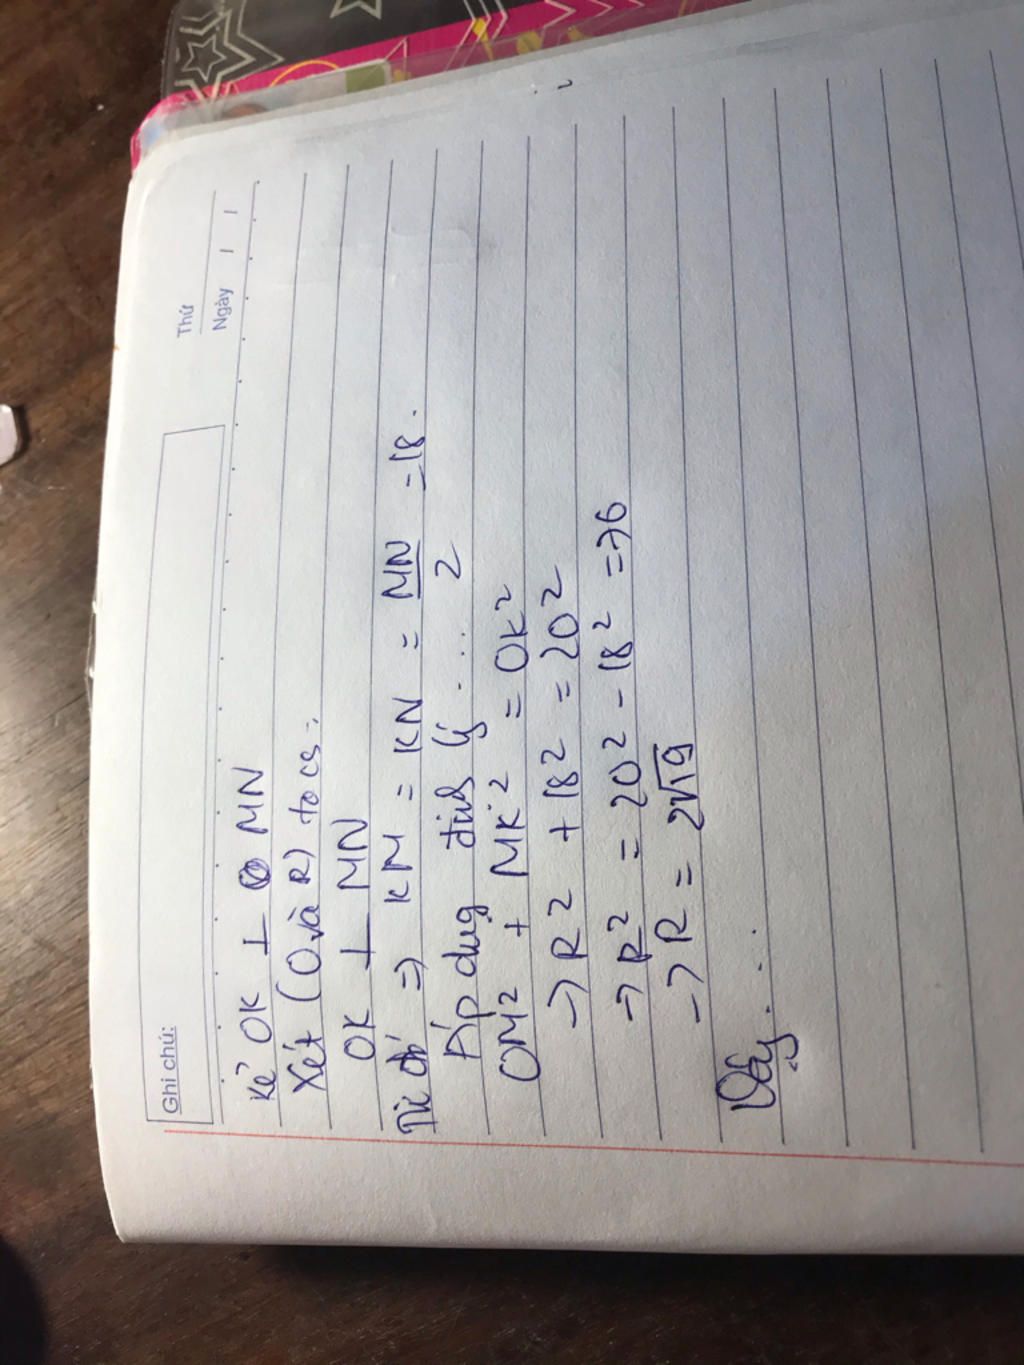 Ghi chú:
Thứ
Ngày / /
Kẻ OK ⊥ MN
Xét (O và R) to cs:
OK ⊥ MN
Từ đó => KM = KN = MN/2 = 18.
Áp dug định lý ....
OM2 + MK2 = OK2
→ R2 + 182 = 202
→ R2 = 202 - 182 = 76
→ R = 2√19
Vậy ....